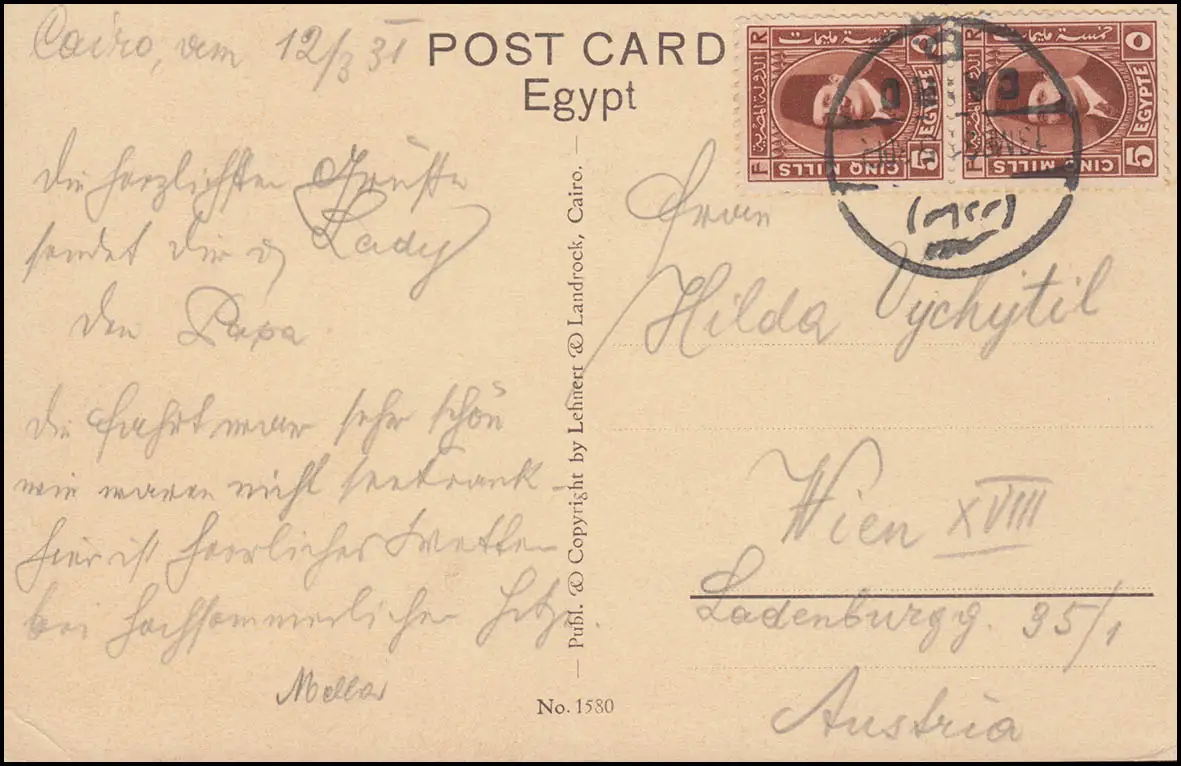 Cairo, am 12/3 31
POST CARD
Egypt
Die herzlichsten Grüsse
sendet dir u Lady
der Papa.
die Fahrt war sehr schön
wir waren nicht seekrank –
hier ist herrliches Wetter
bei hochsommerlicher Hitze.
Publ. & Copyright by Lehnert & Landrock, Cairo.
No. 1580
خمسة مليمات
الدولة المصرية
F R
EGYPTE
5 CINQ MILLS
٥
خمسة مليمات
الدولة المصرية
F R
EGYPTE
5 CINQ MILLS
٥
Frau
Hilda Vychytil
Wien XVIII
Ladenburgg. 35/1
Austria